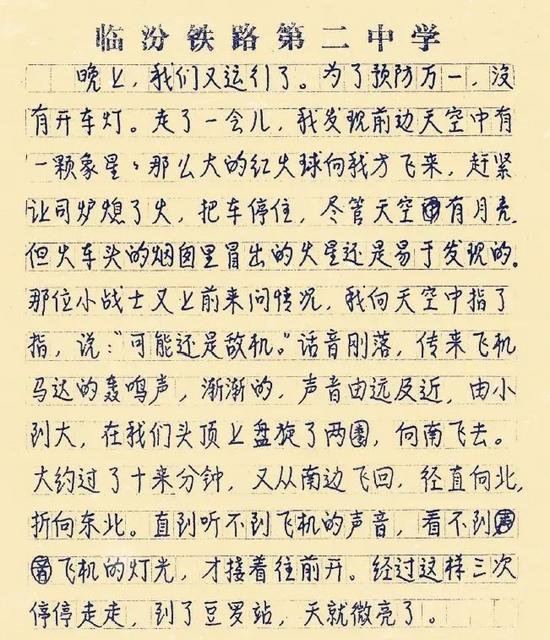 临汾铁路第二中学
晚上，我们又运行了。为了预防万一，没
有开车灯。走了一会儿，我发现前边天空中有
一颗象星，那么大的红火球向我方飞来，赶紧
让司炉熄了火，把车停住，尽管天空有月亮
但火车头的烟囱里冒出的火星还是易于发现的。
那位小战士又上前来问情况，我向天空中指了
指，说："可能还是敌机。"话音刚落，传来飞机
马达的轰鸣声，渐渐的，声音由远及近，由小
到大，在我们头顶上盘旋了两圈，向南飞去。
大约过了十来分钟，又从南边飞回，径直向北，
折向东北。直到听不到飞机的声音，看不到
飞机的灯光，才接着往前开。经过这样三次
停停走走，到了豆罗站，天就微亮了。